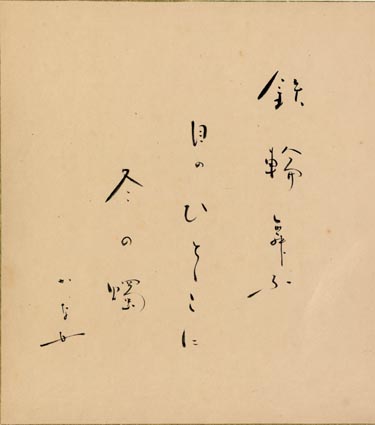 鉄輪舞ふ
目のひとゝこに
冬の燭
かな女